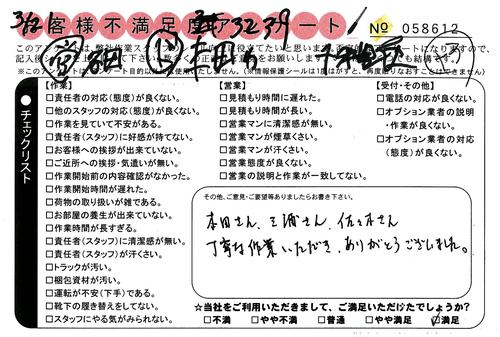 お客様不満足度アンケート
№ 058612
【作業】
□責任者の対応(態度)が良くない。
□他のスタッフの対応(態度)が良くない。
□作業を見ていて不安がある。
□責任者(スタッフ)に好感が持てない。
□お客様への挨拶が出来ていない。
□ご近所への挨拶・気遣いが無い。
□作業開始前の内容確認がなかった。
□作業開始時間が遅れた。
□荷物の取り扱いが雑である。
□お部屋の養生が出来ていない。
□作業時間が長すぎる。
□責任者(スタッフ)に清潔感が無い。
□責任者(スタッフ)が汗くさい。
□トラックが汚い。
□梱包資材が汚い。
□運転が不安(下手)である。
□靴下の履き替えをしてない。
□スタッフにやる気がみられない。
【営業】
□見積もり時間に遅れた。
□見積もり時間が長い。
□営業マンに清潔感が無い。
□営業マンが煙草くさい。
□営業マンが汗くさい。
□営業態度が良くない。
□営業の説明と作業が一致してない。
【受付・その他】
□電話の対応が良くない。
□オプション業者の説明
作業が良くない。
□オプション業者の対応
(態度)が良くない。
チェックリスト
その他、ご意見・ご要望等ありましたらお書き下さい。
本田さん、三浦さん、佐々木さん
丁寧な作業いただき、ありがとうございました。
☆当社をご利用いただきまして、ご満足いただけたでしょうか?
□不満 □やや不満 □普通 □やや満足 ☑満足